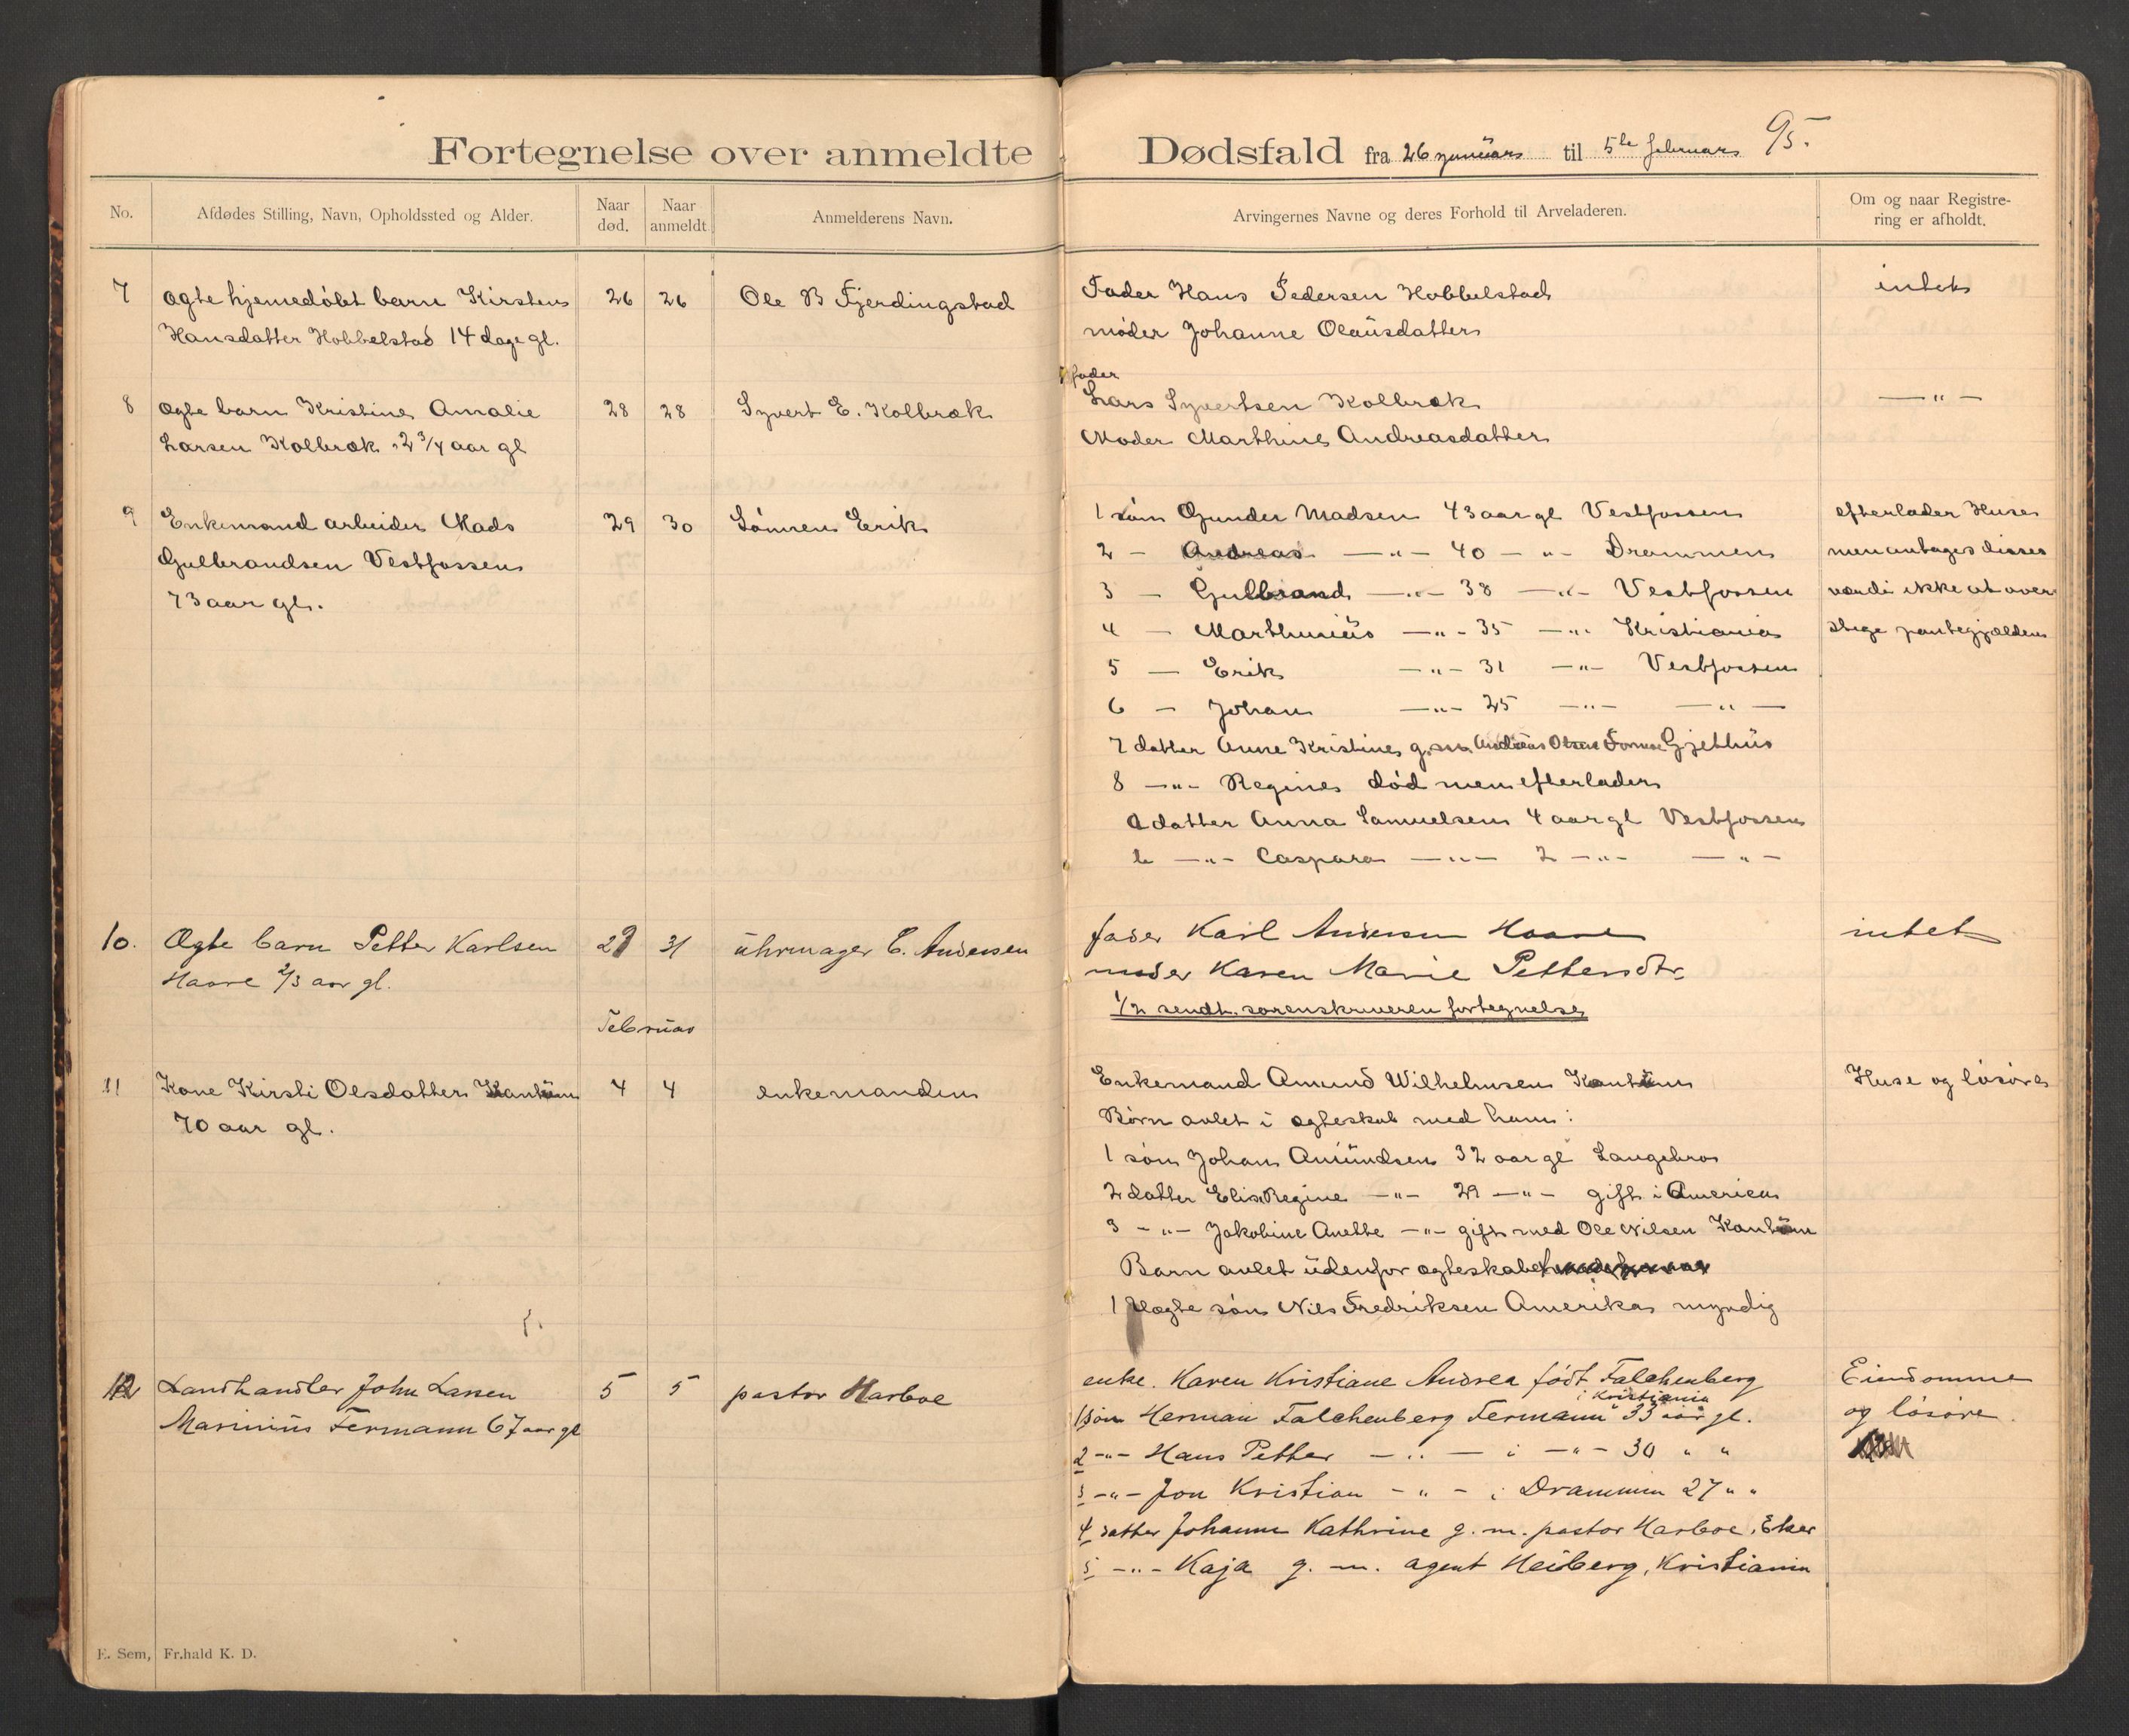 Fortegnelse over anmeldte Dødsfald fra 26 januars til 5te februars 95.
No. Afdødes Stilling, Navn, Opholdssted og Alder. Naar død. Naar anmeldt. Anmelderens Navn. Arvingernes Navne og deres Forhold til Arveladeren. Om og naar Registrering er afholdt.
7 ægte hjemedöbt barn Kirsten 26 26 Ole B Fjerdingstad Fader Hans Pedersen Hobbelstad intet
Hansdatter Hobbelstad 14 dage gl. moder Johanne Olausdatter
fader
8 ægte barn Kristine Amalie 28 28 Syvert E. Kolbræk Lars Syvertsen Kolbræk — " —
Larsen Kolbræk 2 3/4 aar gl Moder Marthine Andreasdatter
9 Enkemand arbeider Mads 29 30 Sönnen Erik 1 sön Gunder Madsen 43 aar gl Vestfossen efterlader Huse
Gulbrandsen Vestfossen 2 — Andreas — " — 40 — " — Drammen men antages disses
73 aar gl. 3 — Gulbrand — " — 38 — " — Vestfossen værdi ikke at over
4 — Marthinius — " — 35 — " — Kristiania stige pantegjælden
5 — Erik — " — 31 — " — Vestfossen
6 — Johan — " — 25 — " — — " —
7 datter Anne Kristine g. m. Andreas Olsen Gjethus
8 — " — Regine död men efterlader
a datter Anna Samuelsen 4 aar gl Vestfossen
b — " — Caspara — " — 2 — " — — " —
10. Ægte barn Petter Karlsen 29 31 uhrmager C. Andersen fader Karl Andersen Haare intet
Haare 2/3 aar gl. moder Karen Marie Pettersdtr.
1/2 sendt sorenskriveren fortegnelse
Februar
11 Kone Kirsti Olsdatter 4 4 enkemanden Enkemand Amund Wilhelmsen Huse og lösöre
70 aar gl. Börn avlet i ægteskab med ham:
1 sön Johan Amundsen 32 aar gl Langebro
2 datter Elis Regine — " — 29 — " — gift i America
3 — " — Jakobine Anette — " — gift med Ole Nilsen
Barn avlet udenfor ægteskabet
1 sön Nils Fredriksen Amerika myndig
12 Landhandler John Larsen 5 5 pastor Harboe enke. Karen Kristiane Andrea født Falchenberg Eiendomme
i Kristiania
Marinius Fermann 67 aar gl 1 sön Herman Falchenberg Fermann 33 aar gl. og lösöre.
2 — " — Hans Petter — " — i — " — 30 " "
3 — " — Jon Kristian — " — i Drammen 27 " "
4 datter Johanne Kathrine g. m. pastor Harboe, Eker
5 — " — Kaja g. m. agent Heiberg, Kristiania
E. Sem, Fr.hald K. D.